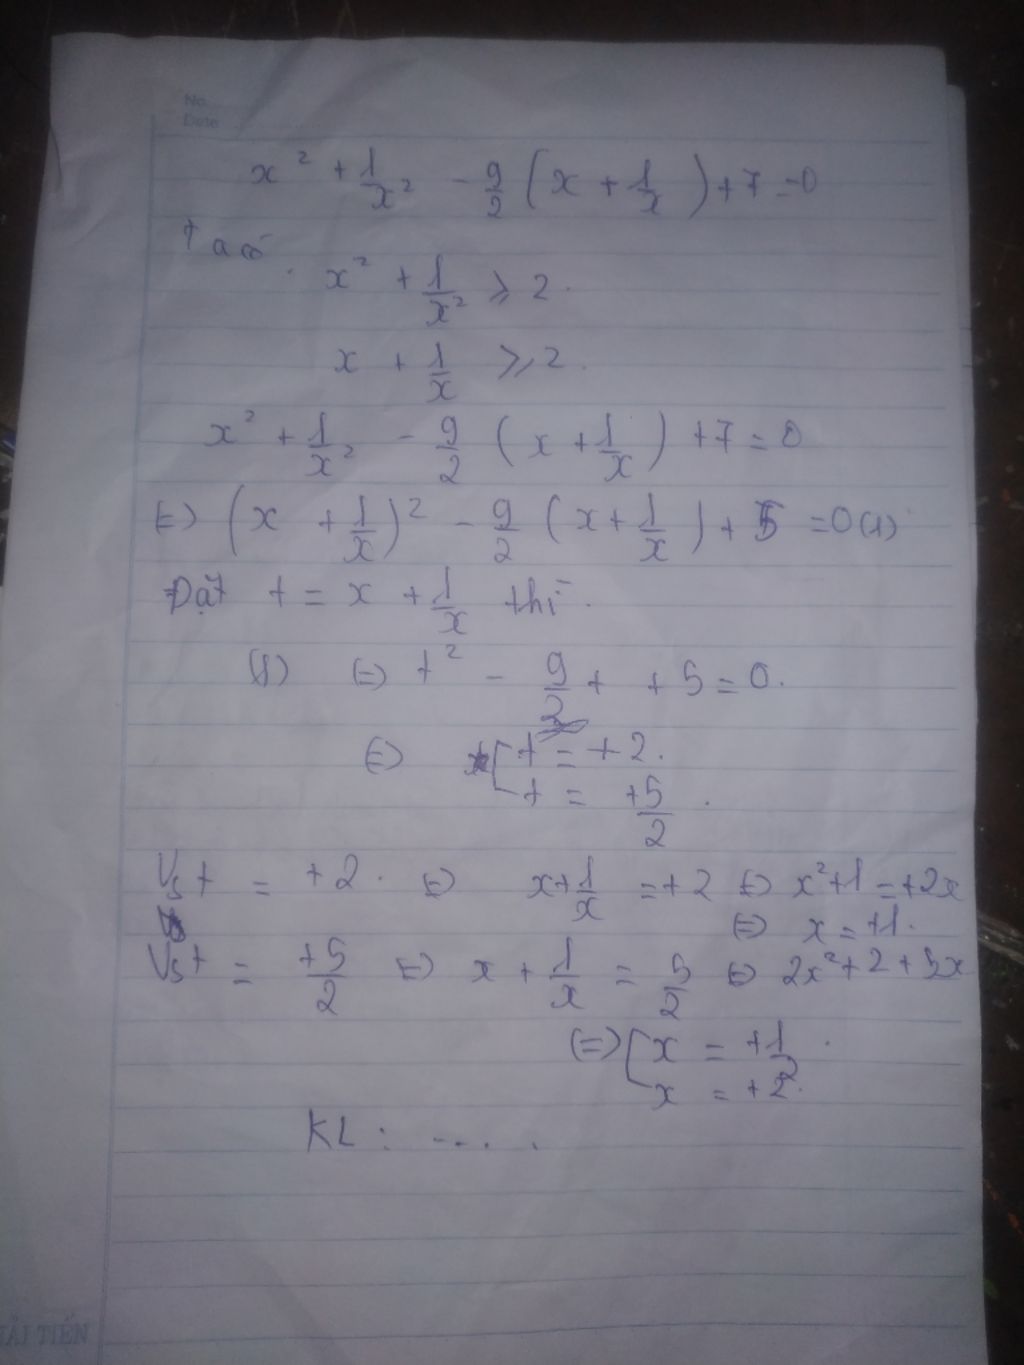 No.
Date
x² + 1/x² - 9/2 (x + 1/x) + 7 = 0
Ta có
x² + 1/x² ⩾ 2.
x + 1/x ⩾ 2.
x² + 1/x² - 9/2 (x + 1/x) + 7 = 0
(=) (x + 1/x)² - 9/2 (x + 1/x) + 5 = 0 (1)
Đặt t = x + 1/x thì.
(1) (=) t² - 9/2 t + 5 = 0.
(=) [ t = +2.
t = +5/2.
Vs t = +2. (=) x + 1/x = +2 (=) x² + 1 = +2x
(=) x = +1.
Vs t = +5/2 (=) x + 1/x = 5/2 (=) 2x² + 2 + 5x
(=) [ x = +1/2.
x = +2.
KL : .....
ẢI TIẾN